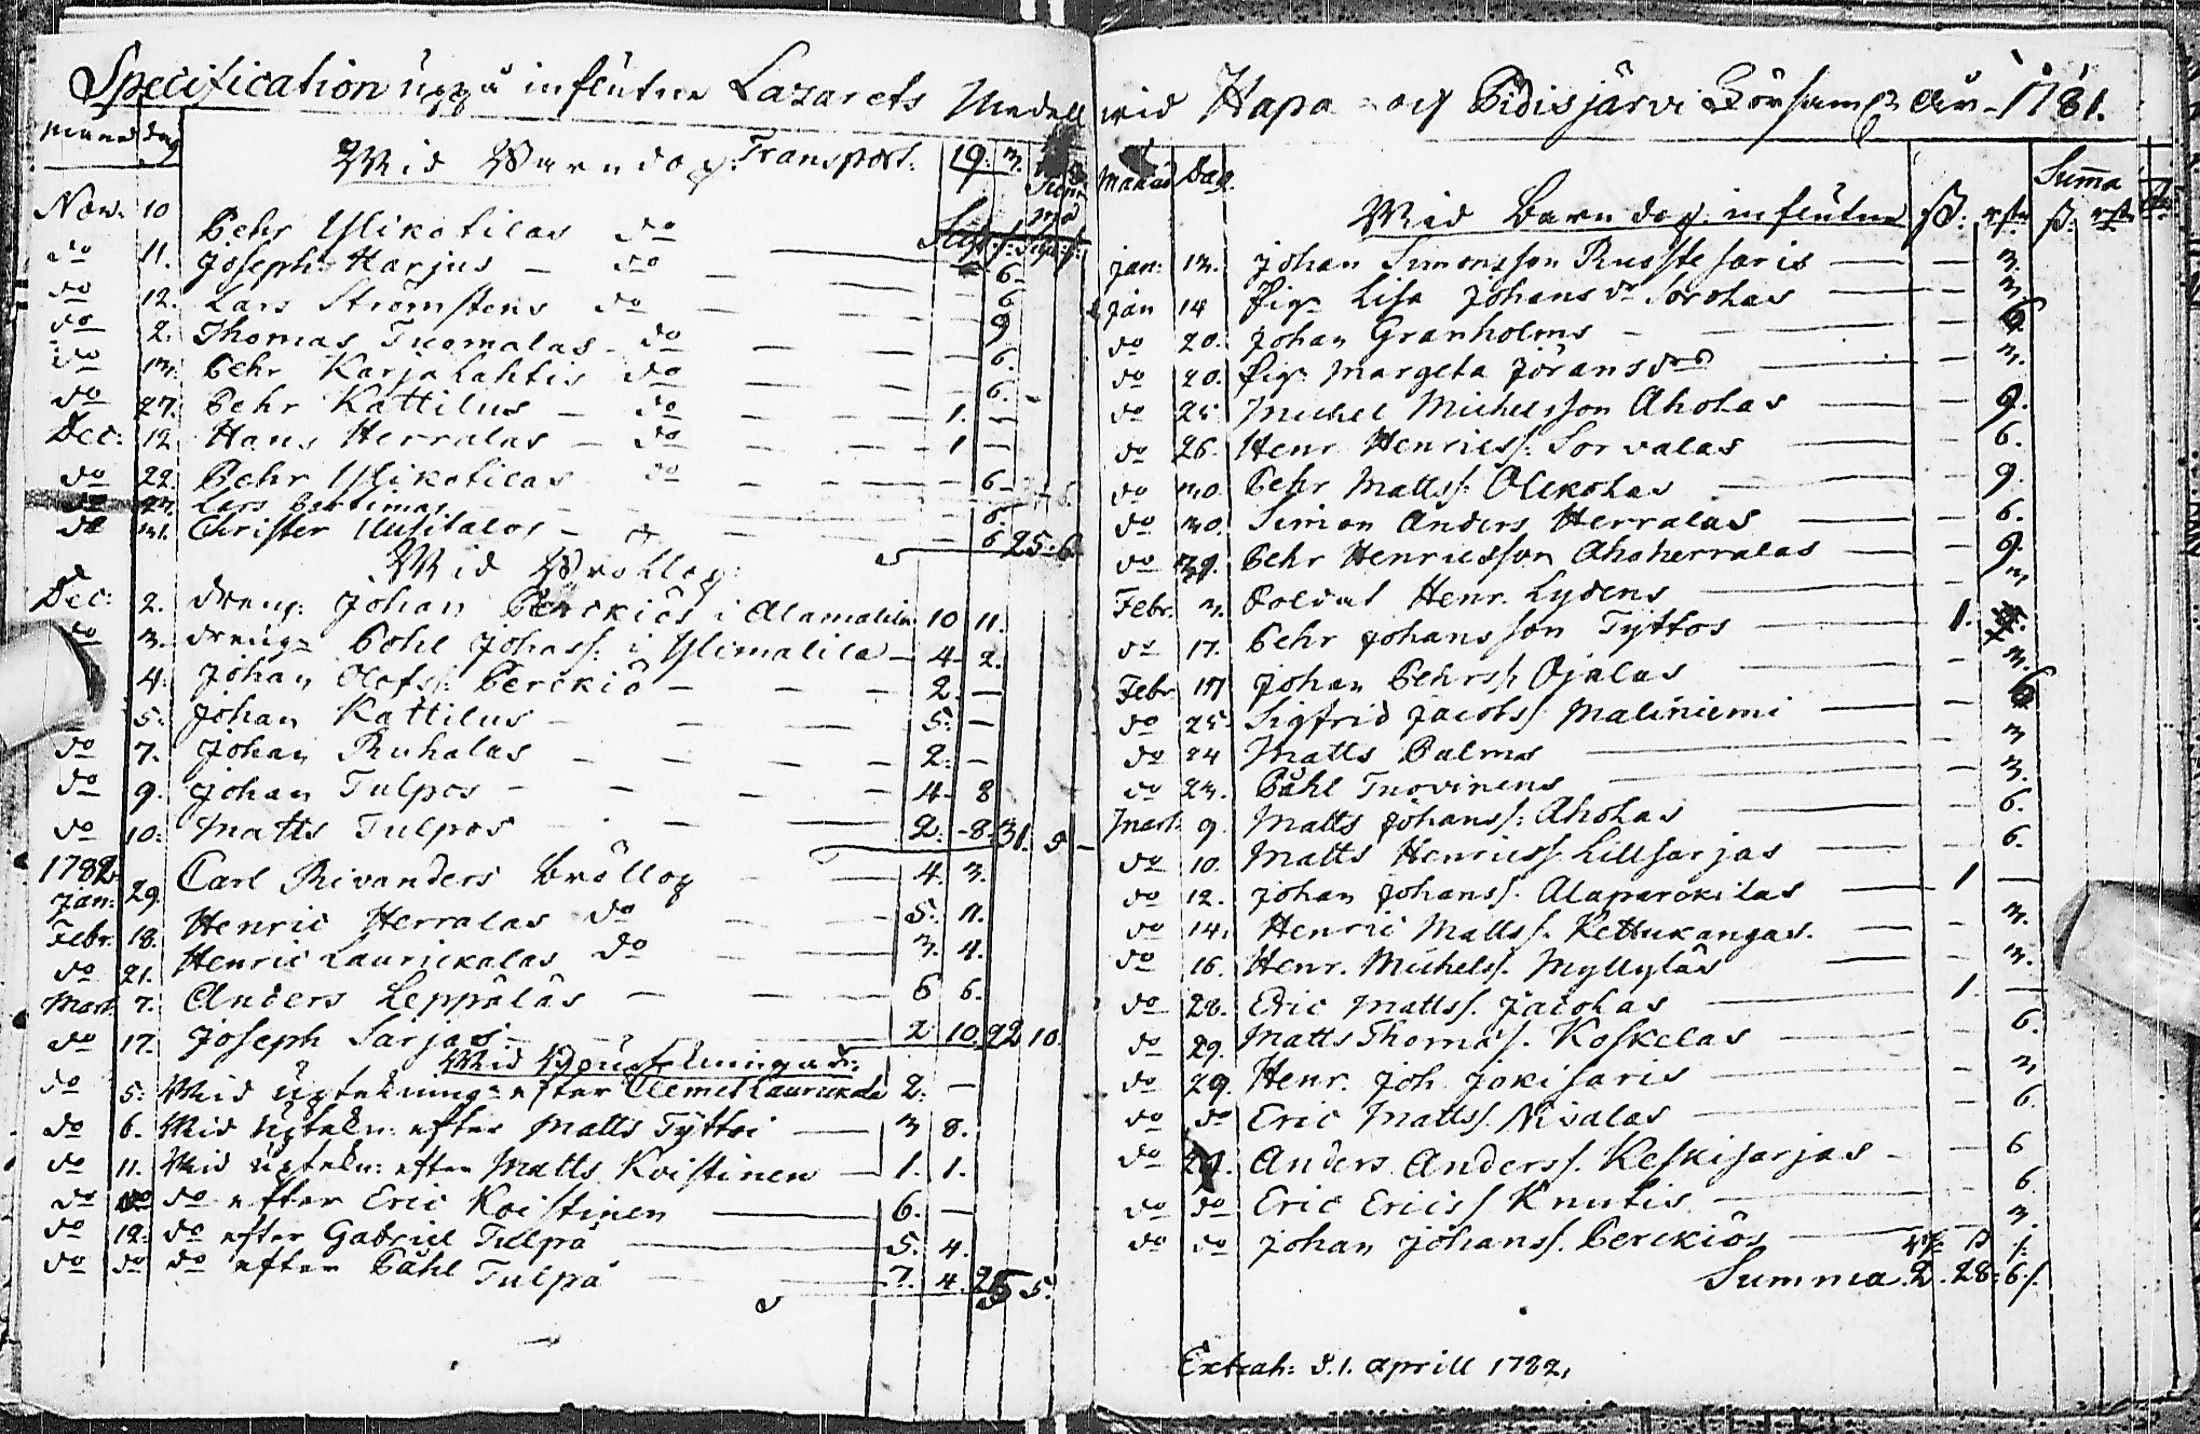 Specification uppå influtne Lazarets Medell wid Hapa- och Pidisjärvi Församl: år 1781.
Månad dag
Wid Barndop. Transport. 19: 3.
Nov: 10 Pehr Ylikotilas do — 6
do 11. Joseph Harjus — do — 6
do 12. Lars Strömstens do — 9
do 2. Thomas Tuomalas — do — 6.
do 13. Pehr Karjalahtis do — 6.
do 27. Pehr Kattilus — do — 1. —
Dec: 12 Hans Herralas — do — 1 —
do 22. Pehr Ylikotilas do — 6
do 27. Lars Perttimas — 6.
do 31. Christer Uusitalos — 6 25: 6
Wid Bröllop:
Dec: 2. dreng: Johan Perckiös i Alamalila 10 11.
do 3. dreng: Påhl Johass: i Ylimalila — 4 2.
4. Johan Olofs: Perckiö — 2. —
5. Johan Kattilus — 5. —
do 7. Johan Ruhalas — 2. —
do 9. Johan Tulpos — 4 8
do 10: Matts Tulpos — 2. 8. 31. 5
1782
Jan: 29. Carl Rivanders Bröllop — 4. 3.
Febr. 18. Henric Herralas do — 5. 11.
do 21. Henric Laurickalas do — 3. 4.
Mart. 7. Anders Leppäläs — 6 6.
do 17. Joseph Sarjas — 2 10. 22 10.
Wid Boupteckningar:
do 5. Wid upteknings efter Clemet Laurickala 2. —
do 6. Wid Uptekn: efter Matts Tyttoi — 3 8.
do 11. Wid uptekn: efter Matts Koistinen — 1. 1.
do do do efter Eric Koistinen — 6. —
do 12: do efter Gabriel Tulpa — 5. 4.
do do do efter Påhl Tulpa — 7. 4. 25 5.
Månad Dag.
Wid Barndop influtne
Summa
Jan: 13. Johan Simonsson Russtesaris — 3.
Jan 14 Pig: Lisa Johansdr Sorohas — 3
do 20. Johan Granholms — 6
do 20. Pig: Margeta Jöransdr — 3.
do 25 Michel Michelsson Aholas — 9.
do 26. Henr Henricss: Sorvalas — 6.
do 30. Pehr Mattss: Olckolas — 9.
do 30. Simon Anders Herralas — 6.
do 29. Pehr Henricsson Ahoherralas — 9.
Febr. 3. Soldat Henr. Lydens — 3
do 17. Pehr Johansson Tyttos — 1.
Febr 17 Johan Pehrss. Ojalas — 3.
do 25. Sigfrid Jacobss. Maliniemi — 6
do 24 Matts Palms — 3
do 23. Påhl Tuovinens — 3.
Mart. 9. Matts Johanss: Aholas — 6.
do 10. Matts Henricss Lillsarjas — 6.
do 12. Johan Johanss. Alaparckilas — 1 —
do 14. Henric Mattss. Kettukangas. — 3.
do 16. Henr. Michelss. Myllyläs — 3.
do 28. Eric Mattss. Jacolas — 1. —
do 29. Matts Thomass. Koskelas — 6.
do 29. Henr. Joh Jokisaris — 3
do do Eric Mattss. Nivalas — 6.
do 29. Anders Anderss. Keskisarjas — 6
do do Eric Ericss Knutis — 6
do do Johan Johanss. Perckiös — 3.
Summa. 2. 28: 6 s.
Extrah: d. 1. Aprill 1782.